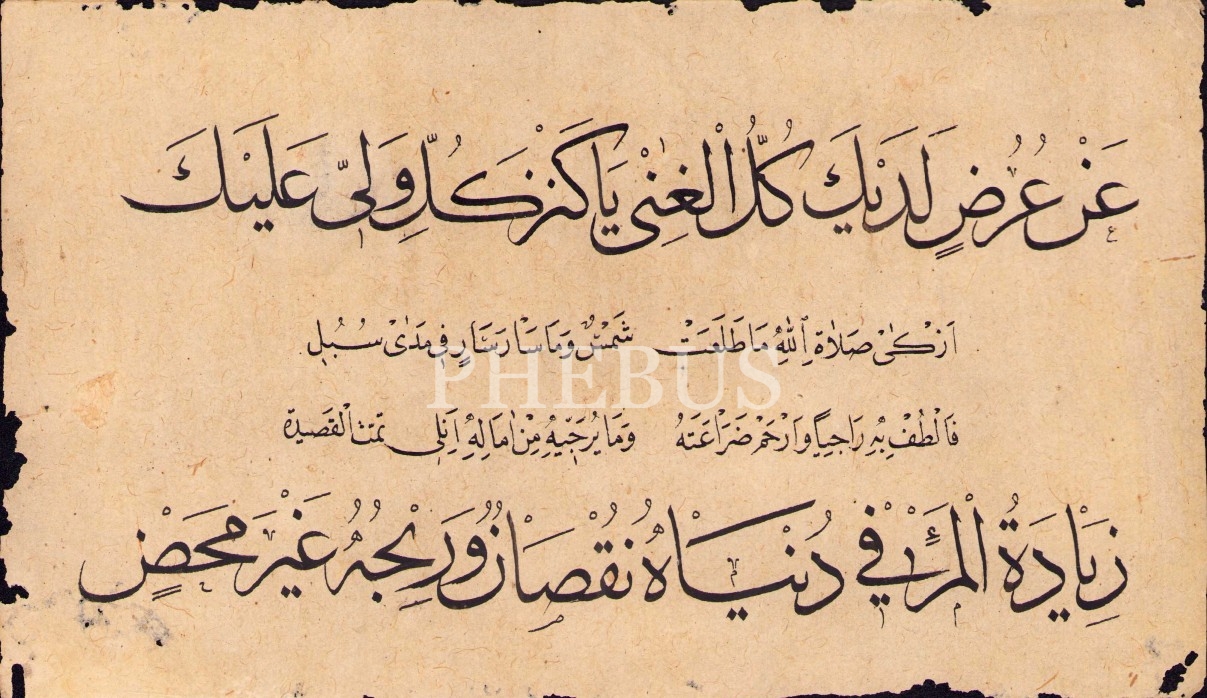 عَنْ عُرُضٍ لَدَيْكَ كُلُّ الْغِنٰى يَا كَنْزَ كُلِّ وَلِيٍّ عَلَيْكَ
اَزْكٰى صَلَاةِ اللّٰهِ مَا طَلَعَتْ شَمْسٌ وَمَا سَارَ سَارٍ فِي مَدٰى سُبُلِ
PHEBUS
فَالْطُفْ بِهِ رَاجِياً وَارْحَمْ ضَرَاعَتَهُ وَمَا يُرَجِّيهِ مِنْ اٰمَالِهِ اَنِلِ تمت القصيدة
زِيَادَةُ الْمَرْءِ فِي دُنْيَاهُ نُقْصَانٌ وَرِبْحُهُ غَيْرَ مَحْضٍ